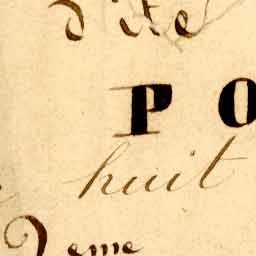 dite
PO
huit
2eme